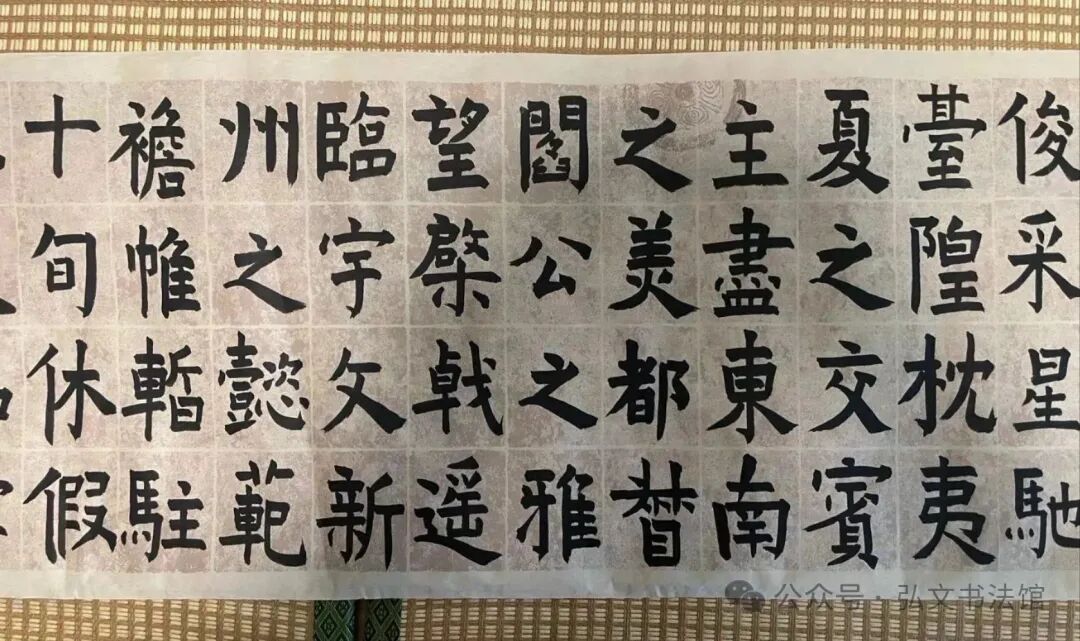 俊采星馳
臺隍枕夷
夏之交賓
主盡東南
之美都督
閻公之雅
望棨戟遥
臨宇文新
州之懿範
襜帷暫駐
十旬休假
公众号 · 弘文书法馆